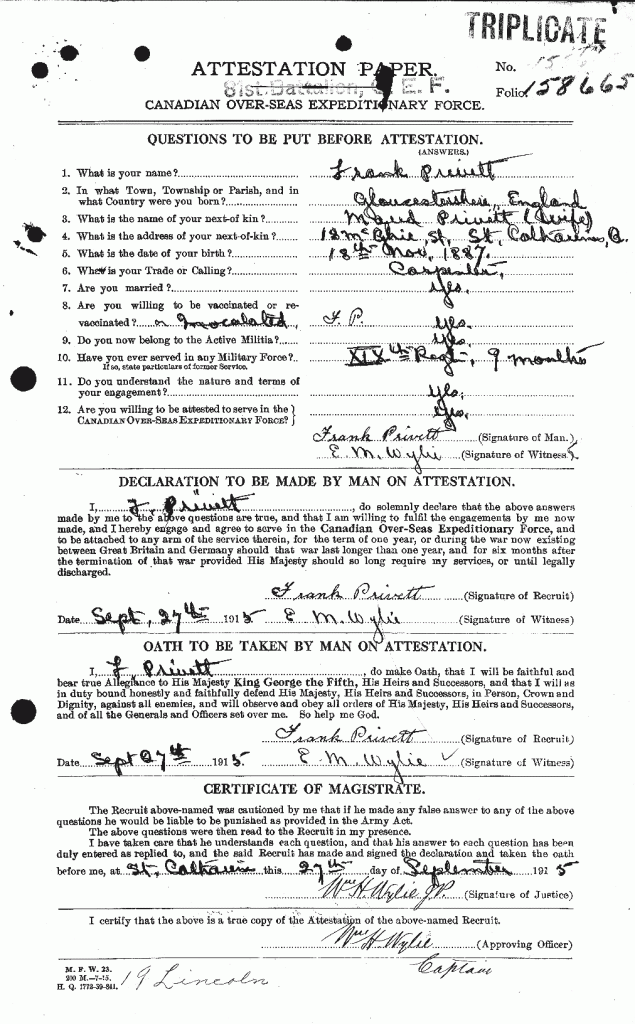 TRIPLICATE
ATTESTATION PAPER.
No.
81st Battalion, C. E. F.
Folio. 158665
CANADIAN OVER-SEAS EXPEDITIONARY FORCE.
QUESTIONS TO BE PUT BEFORE ATTESTATION.
(ANSWERS.)
1. What is your name? Frank Privett
2. In what Town, Township or Parish, and in what Country were you born? Gloucestershire, England
3. What is the name of your next-of kin? Maud Privett (Wife)
4. What is the address of your next-of-kin? St. St. Catharines, O.
5. What is the date of your birth? 18th Nov, 1887.
6. What is your Trade or Calling? Carpenter,
7. Are you married? Yes.
8. Are you willing to be vaccinated or re-vaccinated? or Inoculated, F. P. Yes.
9. Do you now belong to the Active Militia? Yes.
10. Have you ever served in any Military Force? XIXth Regt, 9 months
If so, state particulars of former Service.
11. Do you understand the nature and terms of your engagement? Yes,
12. Are you willing to be attested to serve in the CANADIAN OVER-SEAS EXPEDITIONARY FORCE? Yes,
Frank Privett (Signature of Man.)
E. M. Wylie (Signature of Witness)
DECLARATION TO BE MADE BY MAN ON ATTESTATION.
I, F. Privett, do solemnly declare that the above answers
made by me to the above questions are true, and that I am willing to fulfil the engagements by me now
made, and I hereby engage and agree to serve in the Canadian Over-Seas Expeditionary Force, and
to be attached to any arm of the service therein, for the term of one year, or during the war now existing
between Great Britain and Germany should that war last longer than one year, and for six months after
the termination of that war provided His Majesty should so long require my services, or until legally
discharged.
Frank Privett (Signature of Recruit)
Date Sept, 27th 1915 E. M. Wylie (Signature of Witness)
OATH TO BE TAKEN BY MAN ON ATTESTATION.
I, F Privett, do make Oath, that I will be faithful and
bear true Allegiance to His Majesty King George the Fifth, His Heirs and Successors, and that I will as
in duty bound honestly and faithfully defend His Majesty, His Heirs and Successors, in Person, Crown and
Dignity, against all enemies, and will observe and obey all orders of His Majesty, His Heirs and Successors,
and of all the Generals and Officers set over me. So help me God.
Frank Privett (Signature of Recruit)
Date Sept 27th 1915 E. M. Wylie (Signature of Witness)
CERTIFICATE OF MAGISTRATE.
The Recruit above-named was cautioned by me that if he made any false answer to any of the above
questions he would be liable to be punished as provided in the Army Act.
The above questions were then read to the Recruit in my presence.
I have taken care that he understands each question, and that his answer to each question has been
duly entered as replied to, and the said Recruit has made and signed the declaration and taken the oath
before me, at St. Catharines this 27th day of September 1915
Wm H. Wylie J.P. (Signature of Justice)
I certify that the above is a true copy of the Attestation of the above-named Recruit.
Wm H Wylie (Approving Officer)
Captain
M. F. W. 23.
200 M.—7-15.
H. Q. 1772-39-841.
19 Lincoln